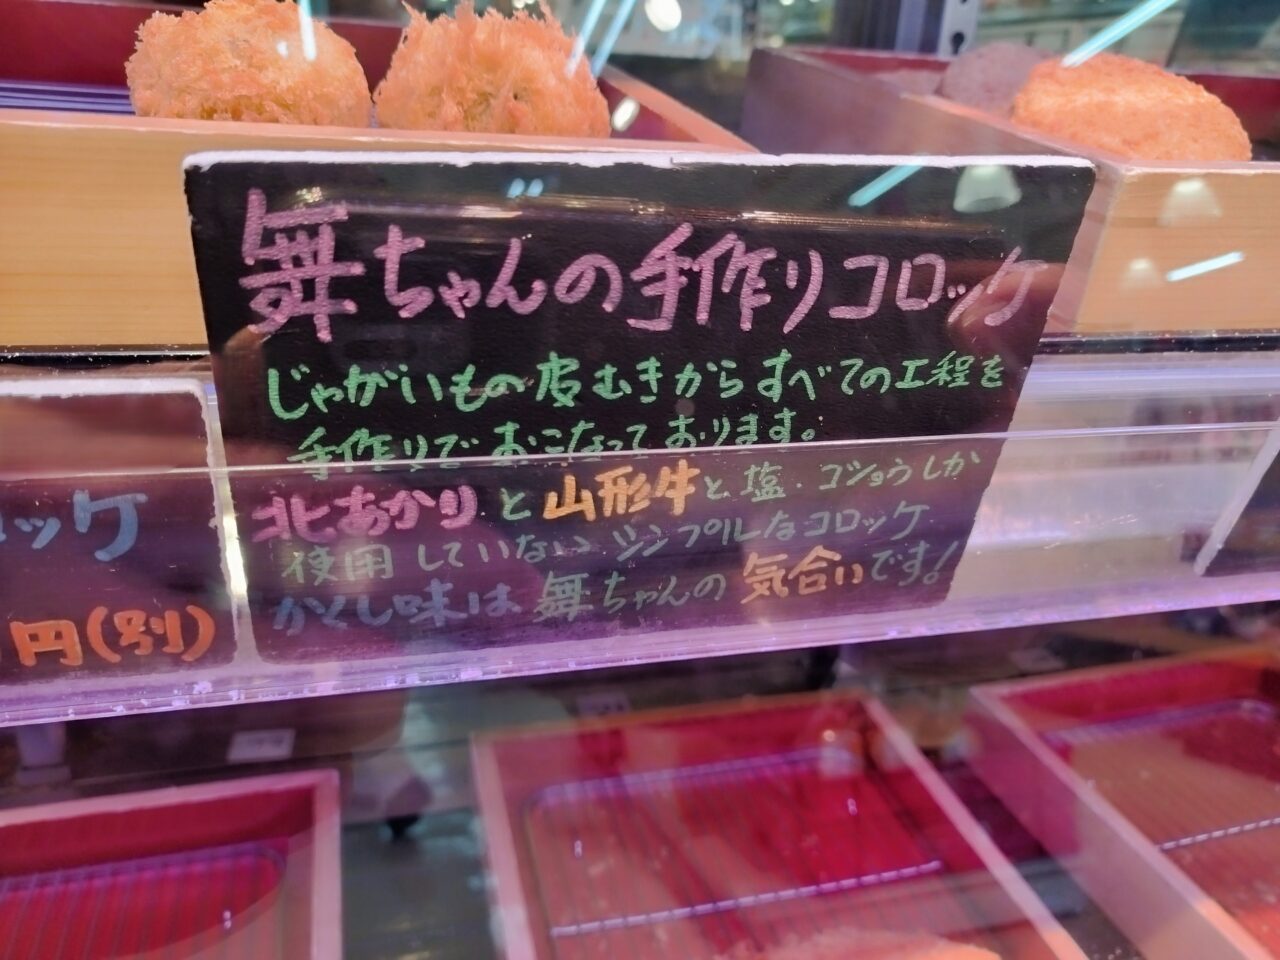 舞ちゃんの手作りコロッケ
じゃがいもの皮むきからすべての工程を
手作りでおこなっております。
北あかりと山形牛と塩・コショウしか
使用していないシンプルなコロッケ
かくし味は舞ちゃんの気合いです!
ロッケ
円(別)